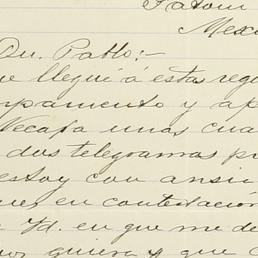 Mexi
Dn. Pablo:-
e llegué á estas reg
mpamento y ap
Necaxa unas cua
dos telegramas p
estoy con ansi
nes en contestación
Vd. en que me de
quiera y que